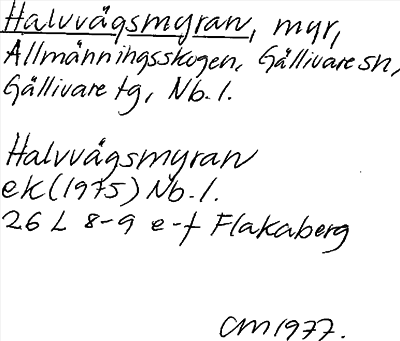 Halvvägsmyran, myr,
Allmänningsskogen, Gällivare sn,
Gällivare tg, Nb. l.
Halvvägsmyran
ek (1975) Nb. l.
26 L 8-9 e-f Flakaberg
CM 1977.